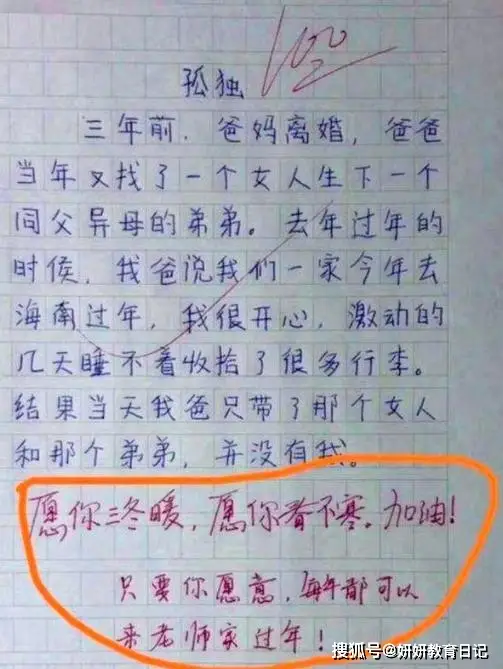 100
孤独
三年前，爸妈离婚，爸爸
当年又找了一个女人生下一个
同父异母的弟弟。去年过年的
时候，我爸说我们一家今年去
海南过年，我很开心，激动的
几天睡不着收拾了很多行李。
结果当天我爸只带了那个女人
和那个弟弟，并没有我。
愿你三冬暖，愿你春不寒。加油！
只要你愿意，每年都可以
来老师家过年！
搜狐号@妍妍教育日记